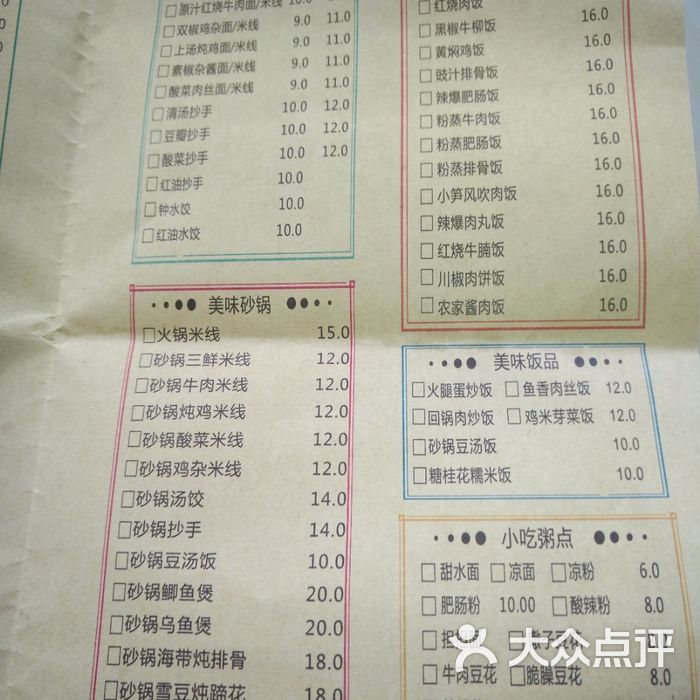 □原汁红烧牛肉面/米线 10.0 11.0
□双椒鸡杂面/米线 9.0 11.0
□上汤炖鸡面/米线 9.0 11.0
□素椒杂酱面/米线 9.0 11.0
□酸菜肉丝面/米线 9.0 11.0
□清汤抄手 10.0 12.0
□豆瓣抄手 10.0 12.0
□酸菜抄手 10.0 12.0
□红油抄手 10.0
□钟水饺 10.0
□红油水饺 10.0
美味砂锅
□火锅米线 15.0
□砂锅三鲜米线 12.0
□砂锅牛肉米线 12.0
□砂锅炖鸡米线 12.0
□砂锅酸菜米线 12.0
□砂锅鸡杂米线 12.0
□砂锅汤饺 14.0
□砂锅抄手 14.0
□砂锅豆汤饭 10.0
□砂锅鲫鱼煲 20.0
□砂锅乌鱼煲 20.0
□砂锅海带炖排骨 18.0
□砂锅雪豆炖蹄花 18.0
□红烧肉饭
□黑椒牛柳饭 16.0
□黄焖鸡饭 16.0
□豉汁排骨饭 16.0
□辣爆肥肠饭 16.0
□粉蒸牛肉饭 16.0
□粉蒸肥肠饭 16.0
□粉蒸排骨饭 16.0
□小笋风吹肉饭 16.0
□辣爆肉丸饭 16.0
□红烧牛腩饭 16.0
□川椒肉饼饭 16.0
□农家酱肉饭 16.0
美味饭品
□火腿蛋炒饭 □鱼香肉丝饭 12.0
□回锅肉炒饭 □鸡米芽菜饭 12.0
□砂锅豆汤饭 10.0
□糖桂花糯米饭 10.0
小吃粥点
□甜水面 □凉面 □凉粉 6.0
□肥肠粉 10.00 □酸辣粉 8.0
□担 □馓子豆花
□牛肉豆花 □脆臊豆花 8.0
大众点评